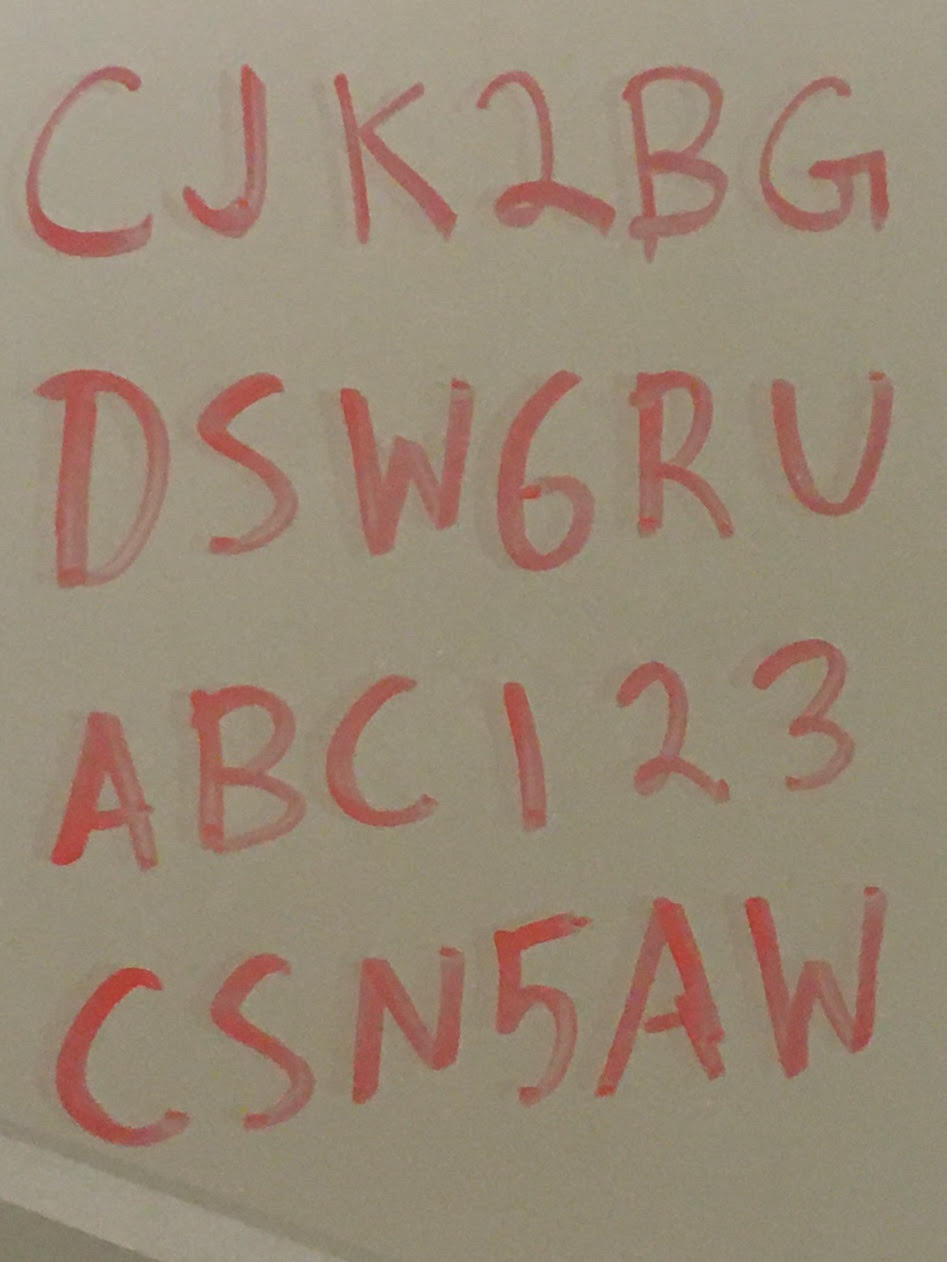 CJK2BG
DSW6RU
ABC123
CSN5AW